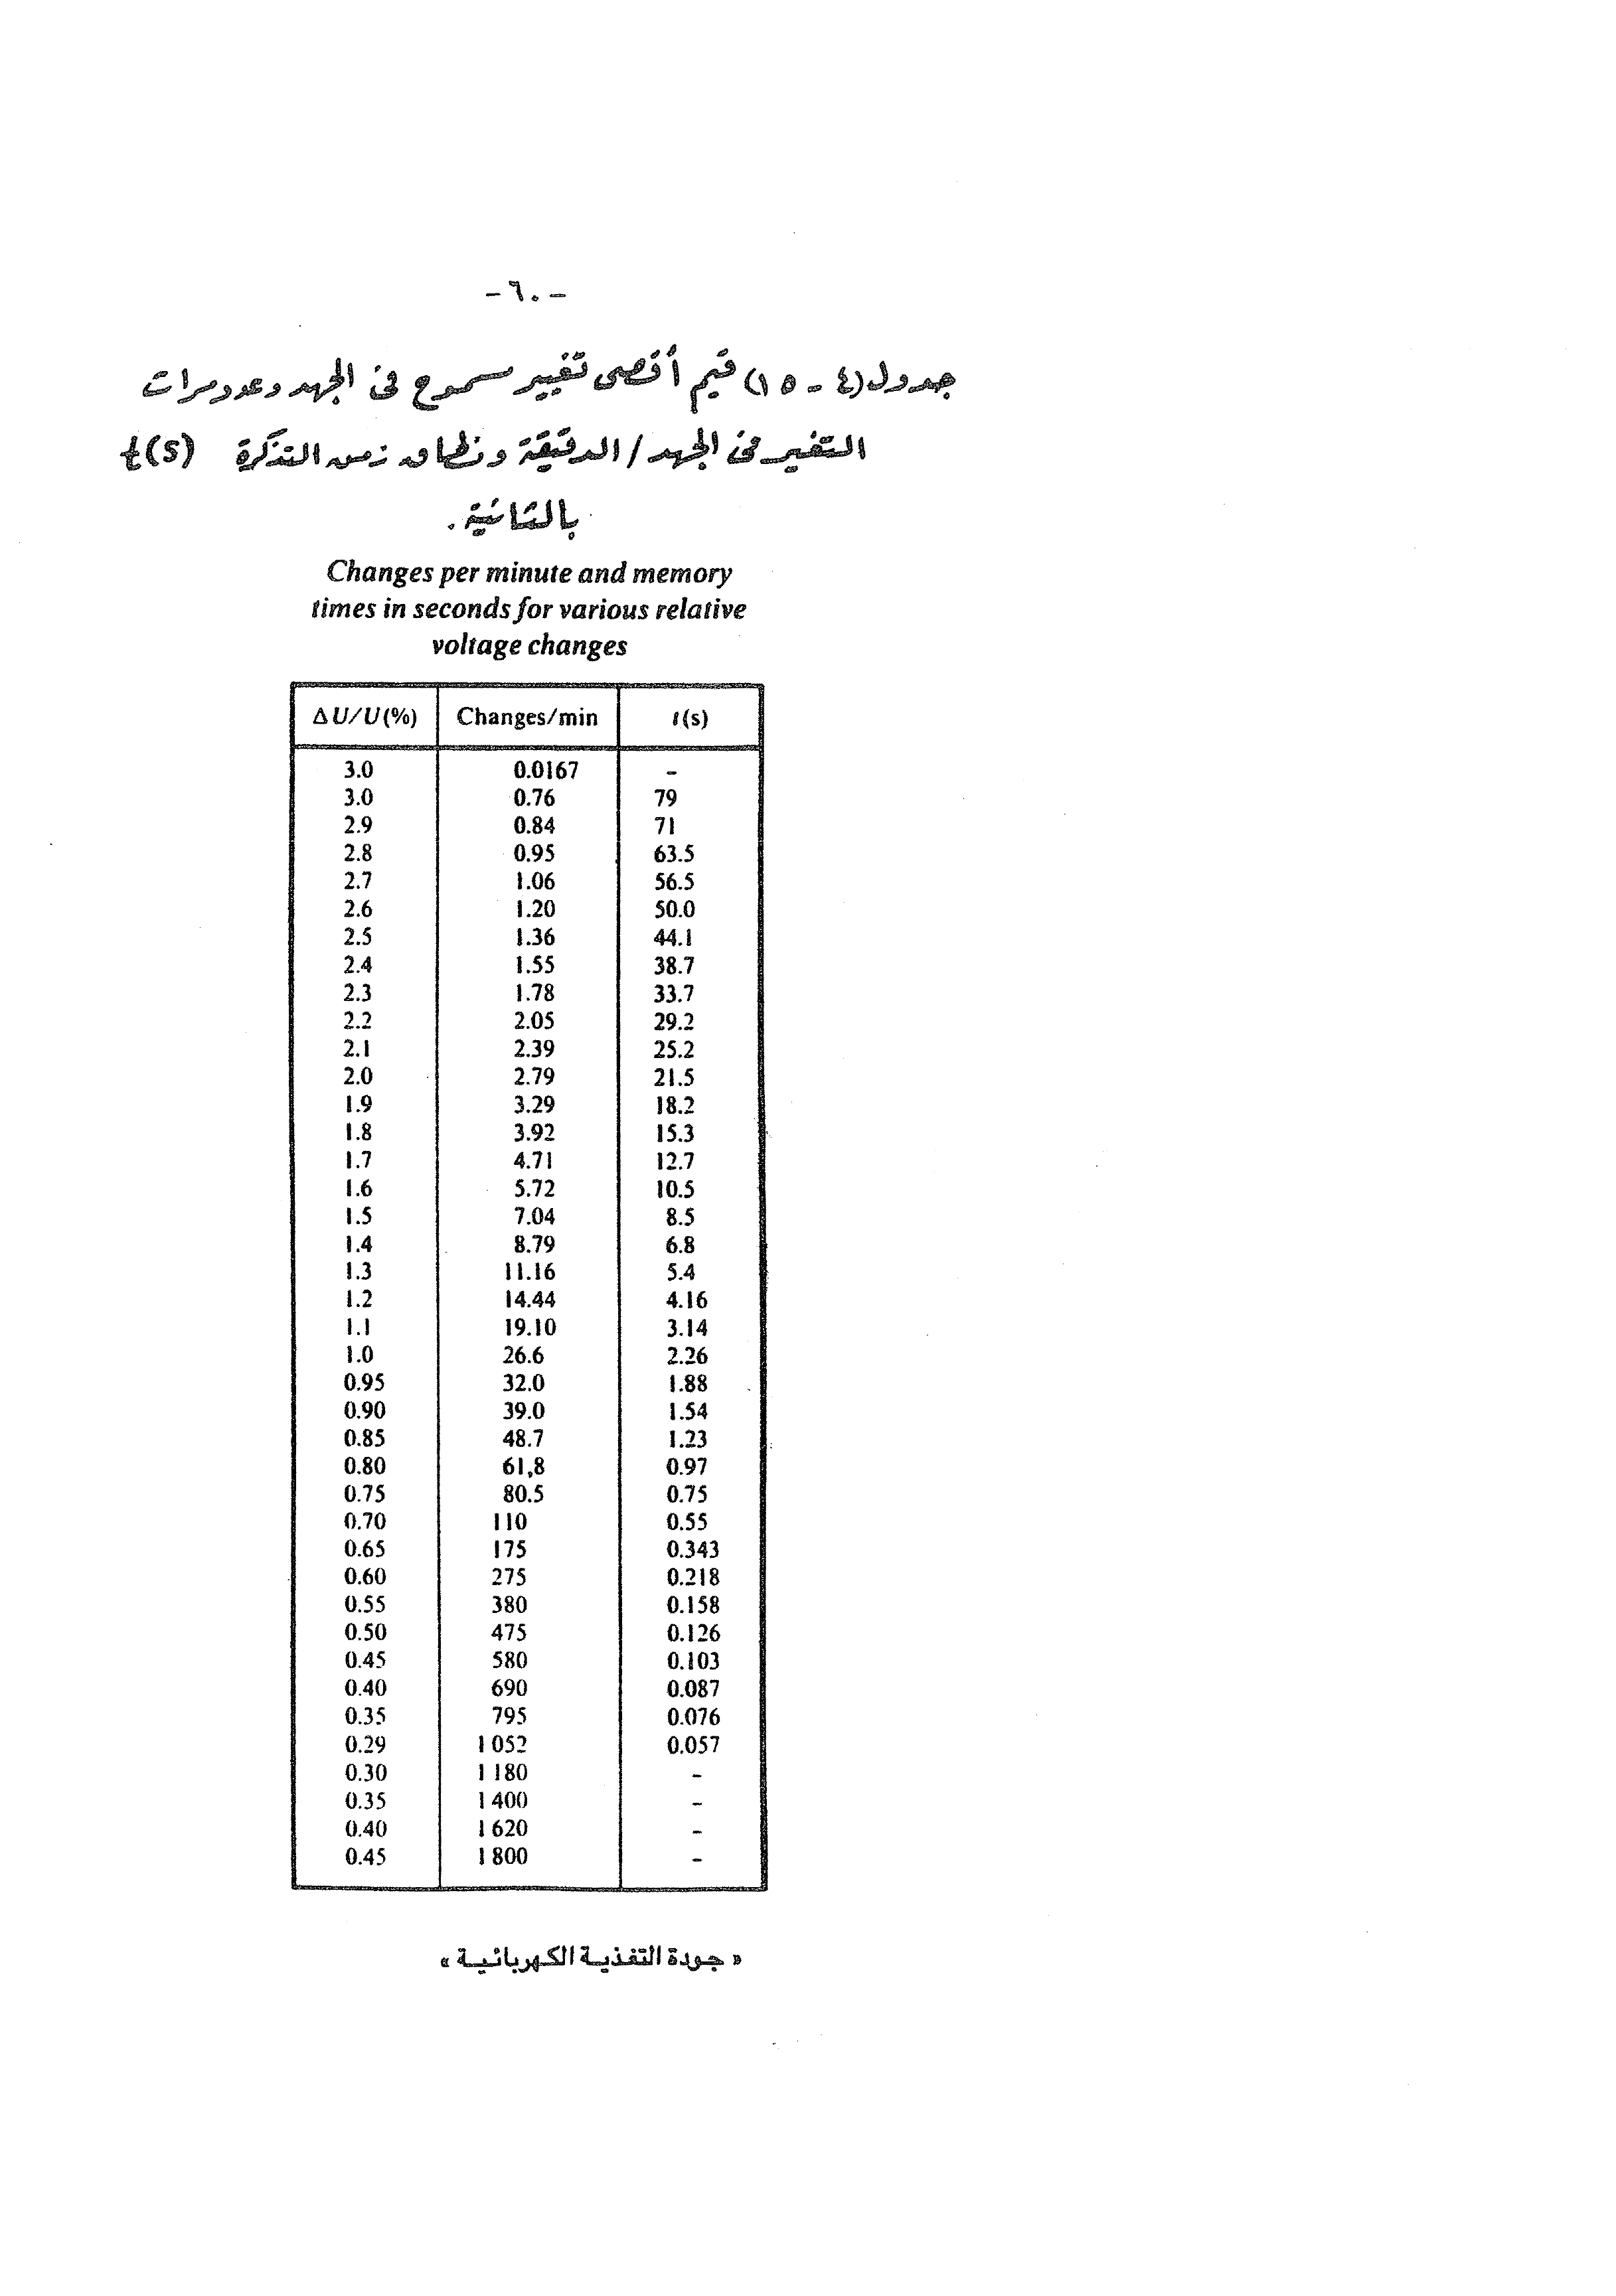 - ٦٠ -
جدول (٤ - ١٥) قيم أقصى تغيير مسموح فى الجهد وعدد مرات
التغير فى الجهد / الدقيقة ونطاق زمن التذكرة t(s)
بالثانية.
Changes per minute and memory
times in seconds for various relative
voltage changes
ΔU/U(%) Changes/min t(s)
3.0 0.0167 -
3.0 0.76 79
2.9 0.84 71
2.8 0.95 63.5
2.7 1.06 56.5
2.6 1.20 50.0
2.5 1.36 44.1
2.4 1.55 38.7
2.3 1.78 33.7
2.2 2.05 29.2
2.1 2.39 25.2
2.0 2.79 21.5
1.9 3.29 18.2
1.8 3.92 15.3
1.7 4.71 12.7
1.6 5.72 10.5
1.5 7.04 8.5
1.4 8.79 6.8
1.3 11.16 5.4
1.2 14.44 4.16
1.1 19.10 3.14
1.0 26.6 2.26
0.95 32.0 1.88
0.90 39.0 1.54
0.85 48.7 1.23
0.80 61,8 0.97
0.75 80.5 0.75
0.70 110 0.55
0.65 175 0.343
0.60 275 0.218
0.55 380 0.158
0.50 475 0.126
0.45 580 0.103
0.40 690 0.087
0.35 795 0.076
0.29 1 052 0.057
0.30 1 180 -
0.35 1 400 -
0.40 1 620 -
0.45 1 800 -
« جودة التغذية الكهربائية »